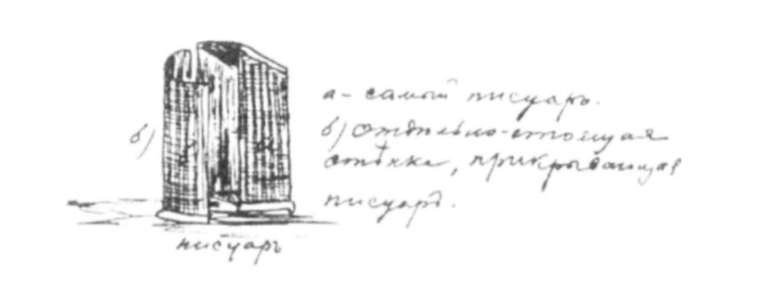 а - самый писуаръ.
б) б) отдѣльно-стоящая
стѣнка, прикрывающая
писуаръ.
писуаръ